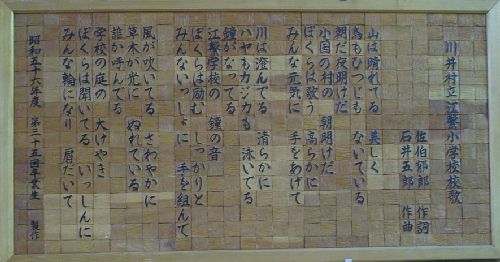 川井村立江繋小学校校歌
佐伯郁郎 作詞
石井五郎 作曲
山は晴れてる 美しく
鳥もひつじも ないている
朝だ夜明けだ
小国の村の 朝明けだ
ぼくらは歌う 高らかに
みんな元気に 手をあげて
川は澄んでる 清らかに
ハヤもカジカも 泳いでる
鐘がなってる
江繋学校の 鐘の音
ぼくらは励む しっかりと
みんないっしょに 手を組んで
風が吹いてる さわやかに
草木が光に ぬれている
誰か呼んでる
学校の庭の 大けやき
ぼくらは聞いてる いっしんに
みんな輪になり 肩だいて
昭和五十六年度 第三十五回卒業生 製作